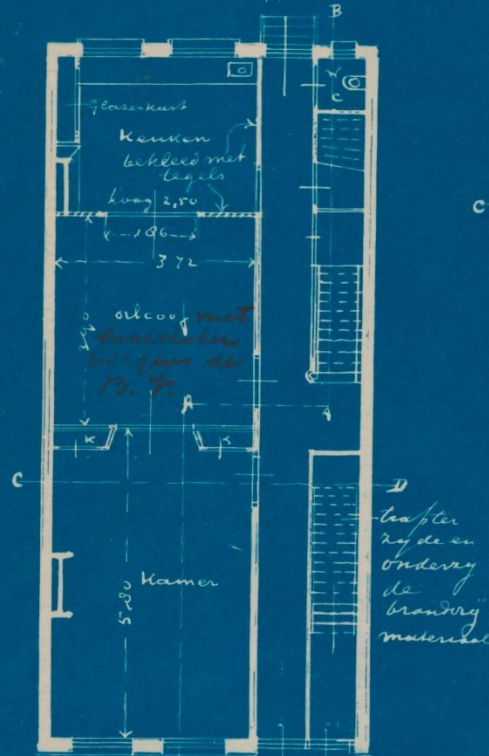 B
W
C
Glazenkast
Keuken
bekleed met
tegels
hoog 2,50
1,86
3,72
C
alcoof met
volgens de
B. V.
A
A
K
K
C
D
trap ter
zyde en
onderzy
de
brandvrij
materiaal
Kamer
5,80